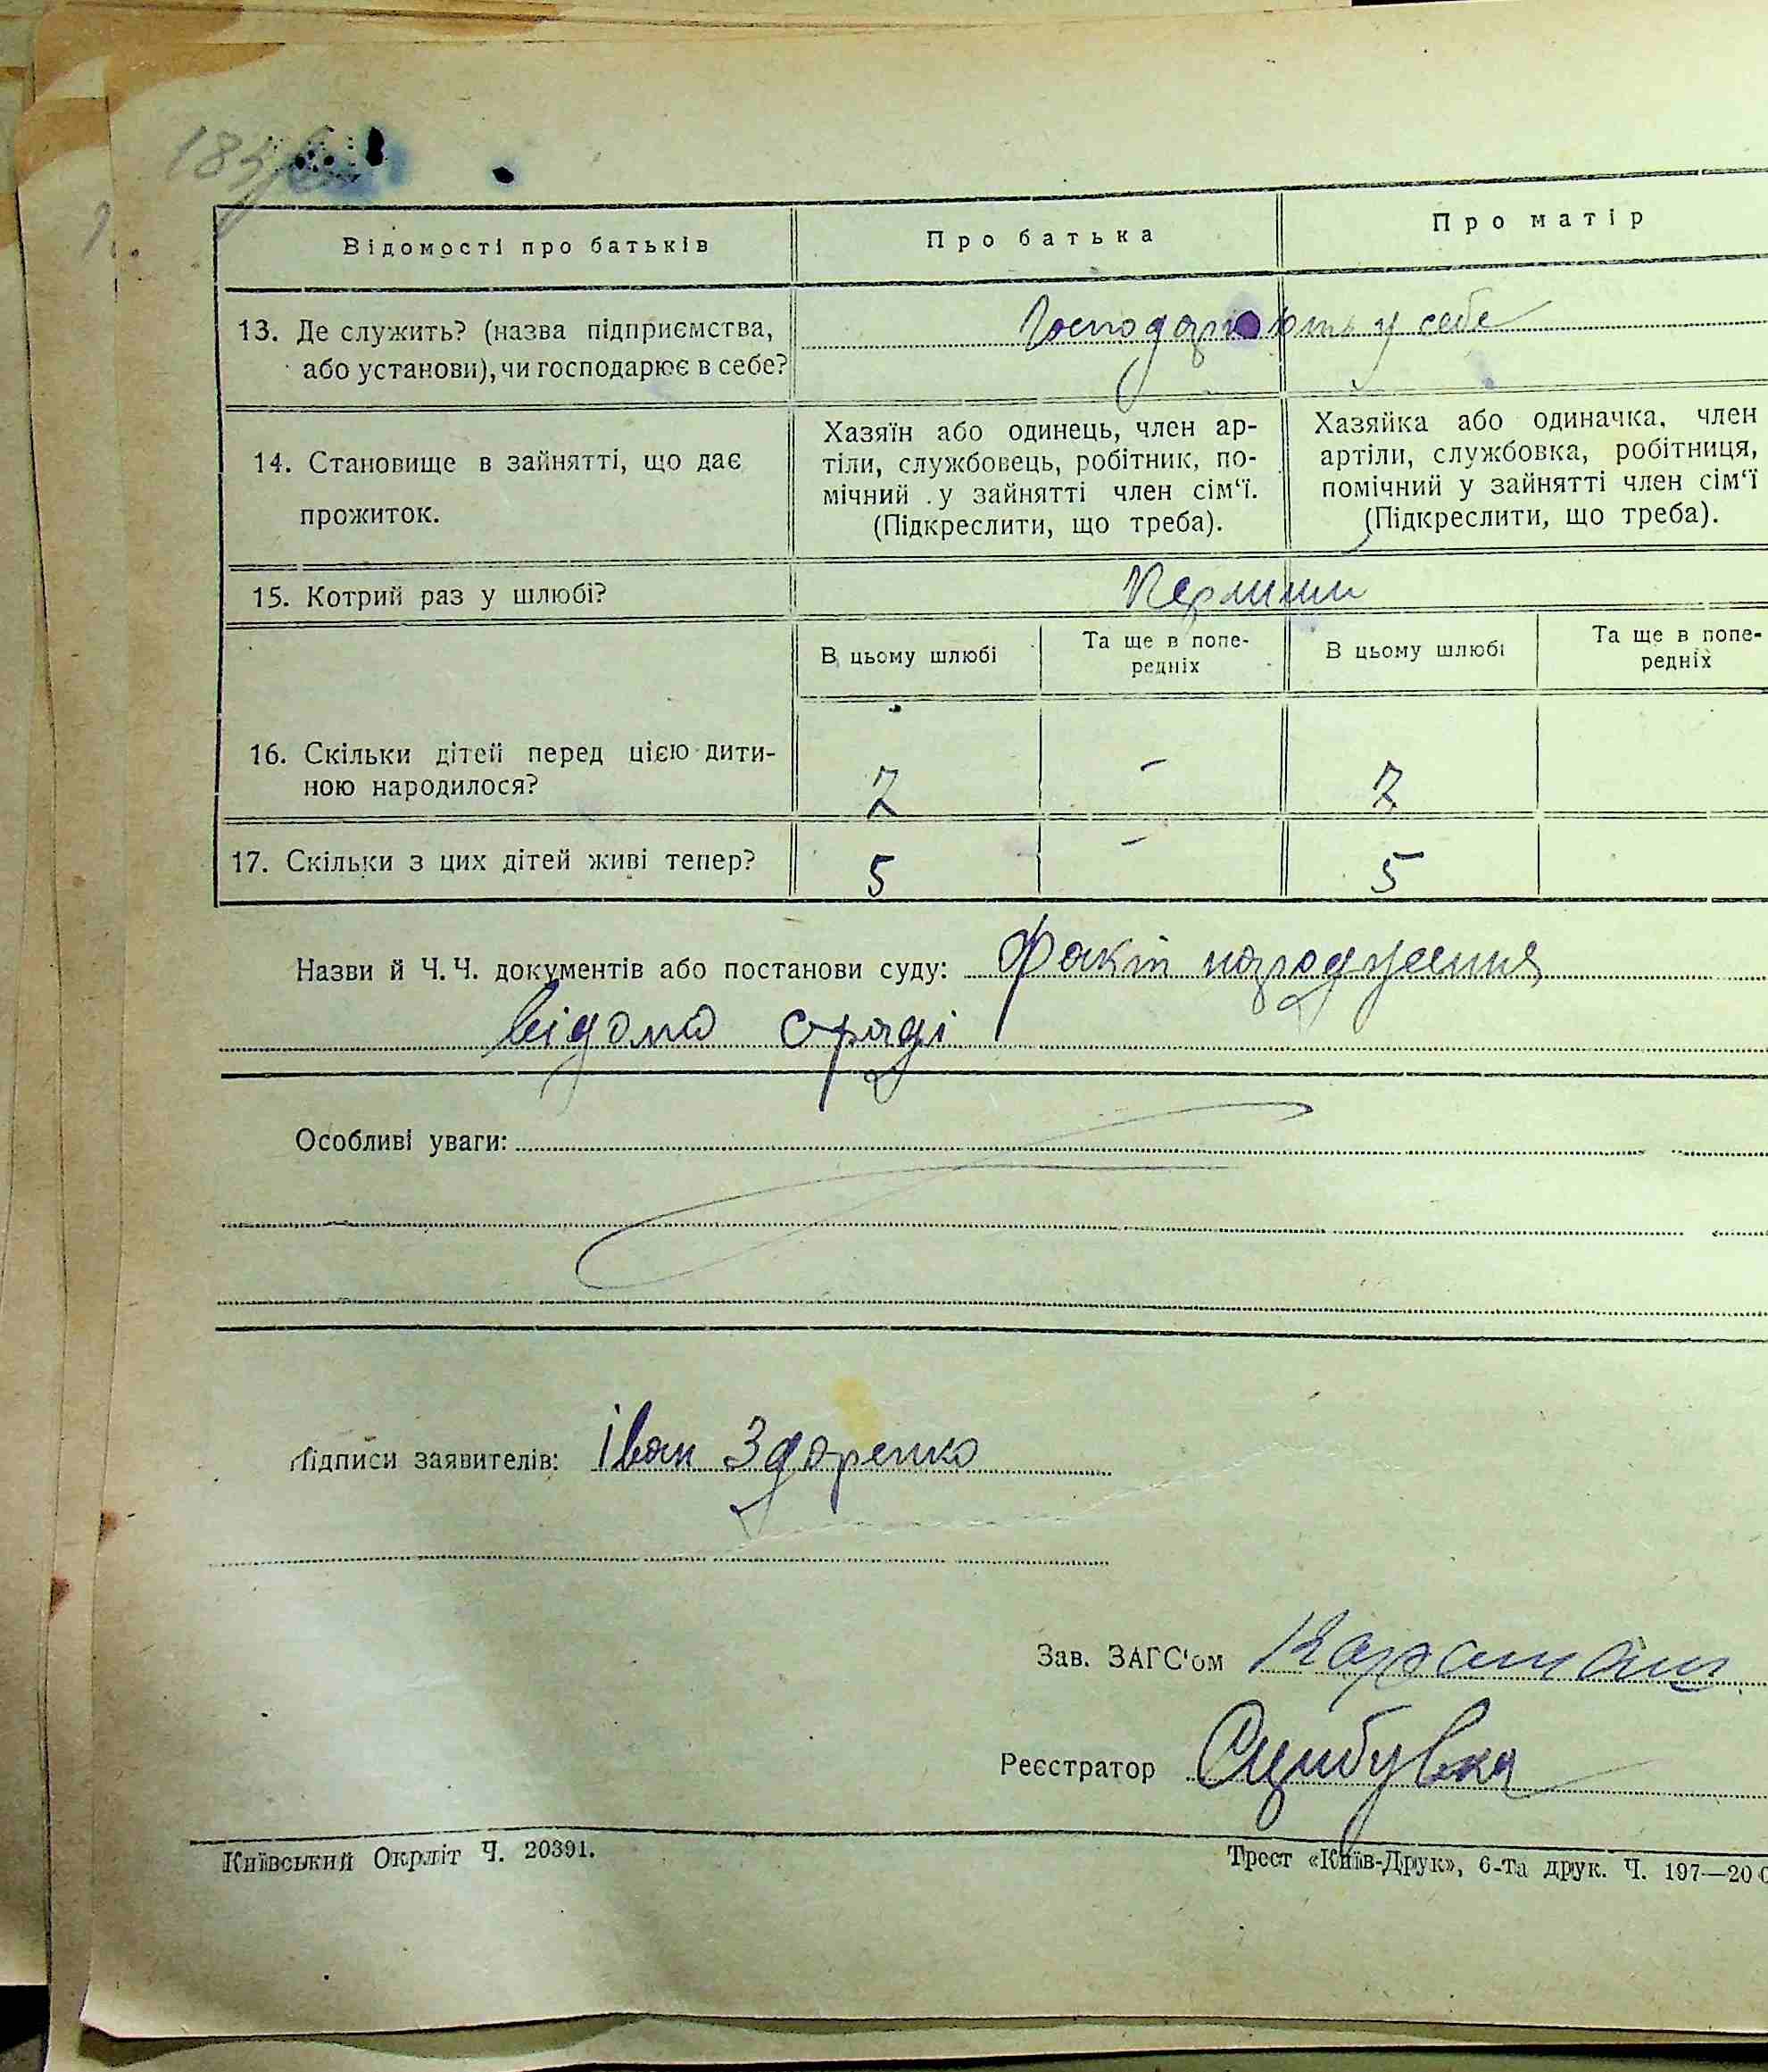 Відомості про батьків
Про батька
Про матір
13. Де служить? (назва підприємства,
або установи), чи господарює в себе?
Господарюють у себе
14. Становище в зайнятті, що дає
прожиток.
Хазяїн або одинець, член ар-
тіли, службовець, робітник, по-
мічний у зайнятті член сім‘ї.
(Підкреслити, що треба).
Хазяйка або одиначка, член
артіли, службовка, робітниця,
помічний у зайнятті член сім‘ї
(Підкреслити, що треба).
15. Котрий раз у шлюбі?
В цьому шлюбі
Та ще в попе-
редніх
В цьому шлюбі
Та ще в попе-
редніх
16. Скільки дітей перед цією дити-
ною народилося?
7 - 7
17. Скільки з цих дітей живі тепер?
5 - 5
Назви й Ч.Ч. документів або постанови суду: Факт народження
відомо сраді
Особливі уваги:
Підписи заявителів: Іван Здоренко
Зав. ЗАГС'ом
Реєстратор
Київський Окрліт Ч. 20391.
Трест «Київ-Друк», 6-та друк. Ч. 197—20